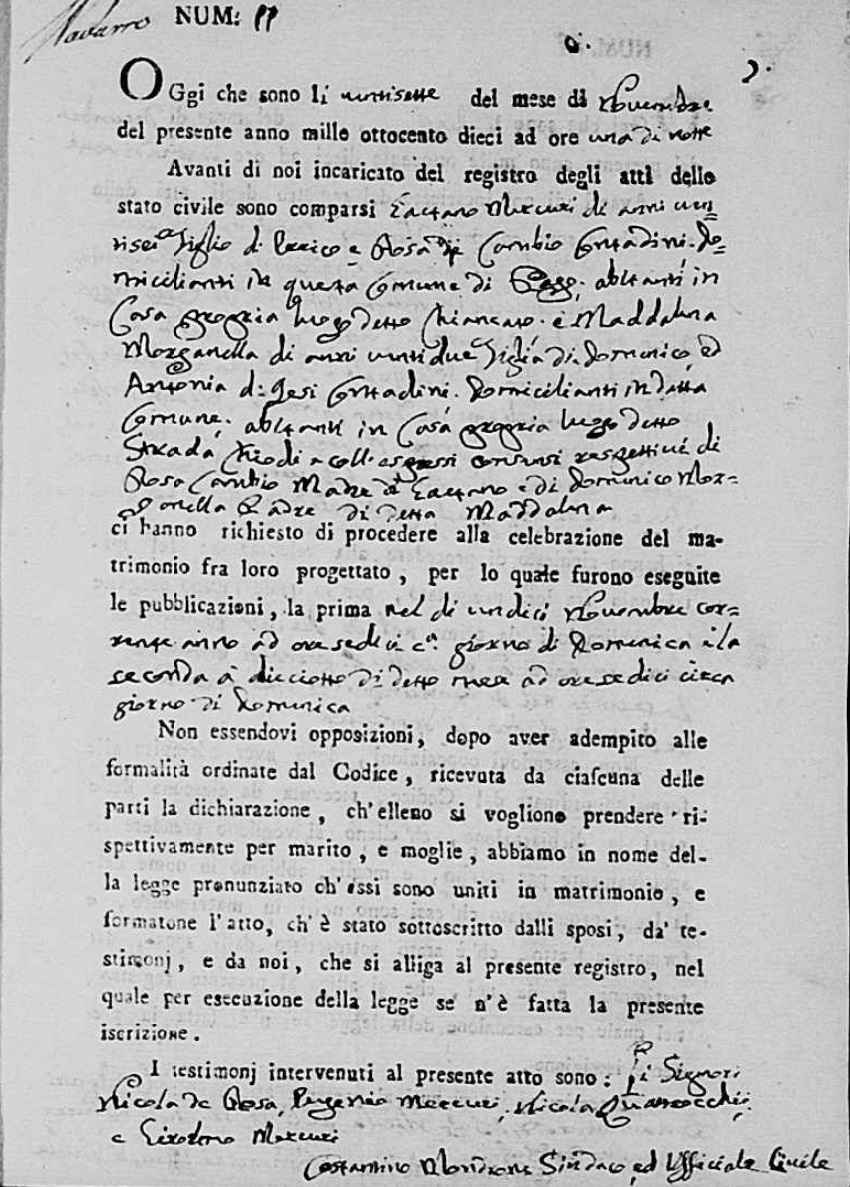 Navarro NUM: 11
Oggi che sono li ventisette del mese di Novembre
del presente anno mille ottocento dieci ad ore una di notte
Avanti di noi incaricato del registro degli atti dello
stato civile sono comparsi Gaetano Mercuri di anni ven=
tisei figlio di e Rosa di Cambio Contadini. Do=
micilianti in questa Comune di abitanti in
Casa propria luogo detto e Maddalena
Morganella di anni ventidue figlia di Domenico, ed
Antonia di Gesi Contadini. Domicilianti in detta
Comune. abitanti in Casa propria luogo detto
Strada, Chiodi a coll. espressi consensi respettivi di
Rosa Cambio Madre di Gaetano e di Domenico Mor=
ganella Padre di detta Maddalena
ci hanno richiesto di procedere alla celebrazione del ma-
trimonio fra loro progettato, per lo quale furono eseguite
le pubblicazioni, la prima nel di undici Novembre cor=
rente anno ad ore sedici c.a giorno di Domenica e la
seconda a dieciotto di detto mese ad ore sedici circa
giorno di Domenica
Non essendovi opposizioni, dopo aver adempito alle
formalità ordinate dal Codice, ricevuta da ciascuna delle
parti la dichiarazione, ch'elleno si vogliono prendere ri-
spettivamente per marito, e moglie, abbiamo in nome del-
la legge pronunziato ch'essi sono uniti in matrimonio, e
formatone l'atto, ch'è stato sottoscritto dalli sposi, da' te-
stimonj, e da noi, che si alliga al presente registro, nel
quale per esecuzione della legge se n'è fatta la presente
iscrizione.
I testimonj intervenuti al presente atto sono: li Signori
Nicola de Rosa, Eugenio Mercuri, Nicola Quattrocchi,
e Mercuri
Costantino Sindaco, ed Ufficiale Civile